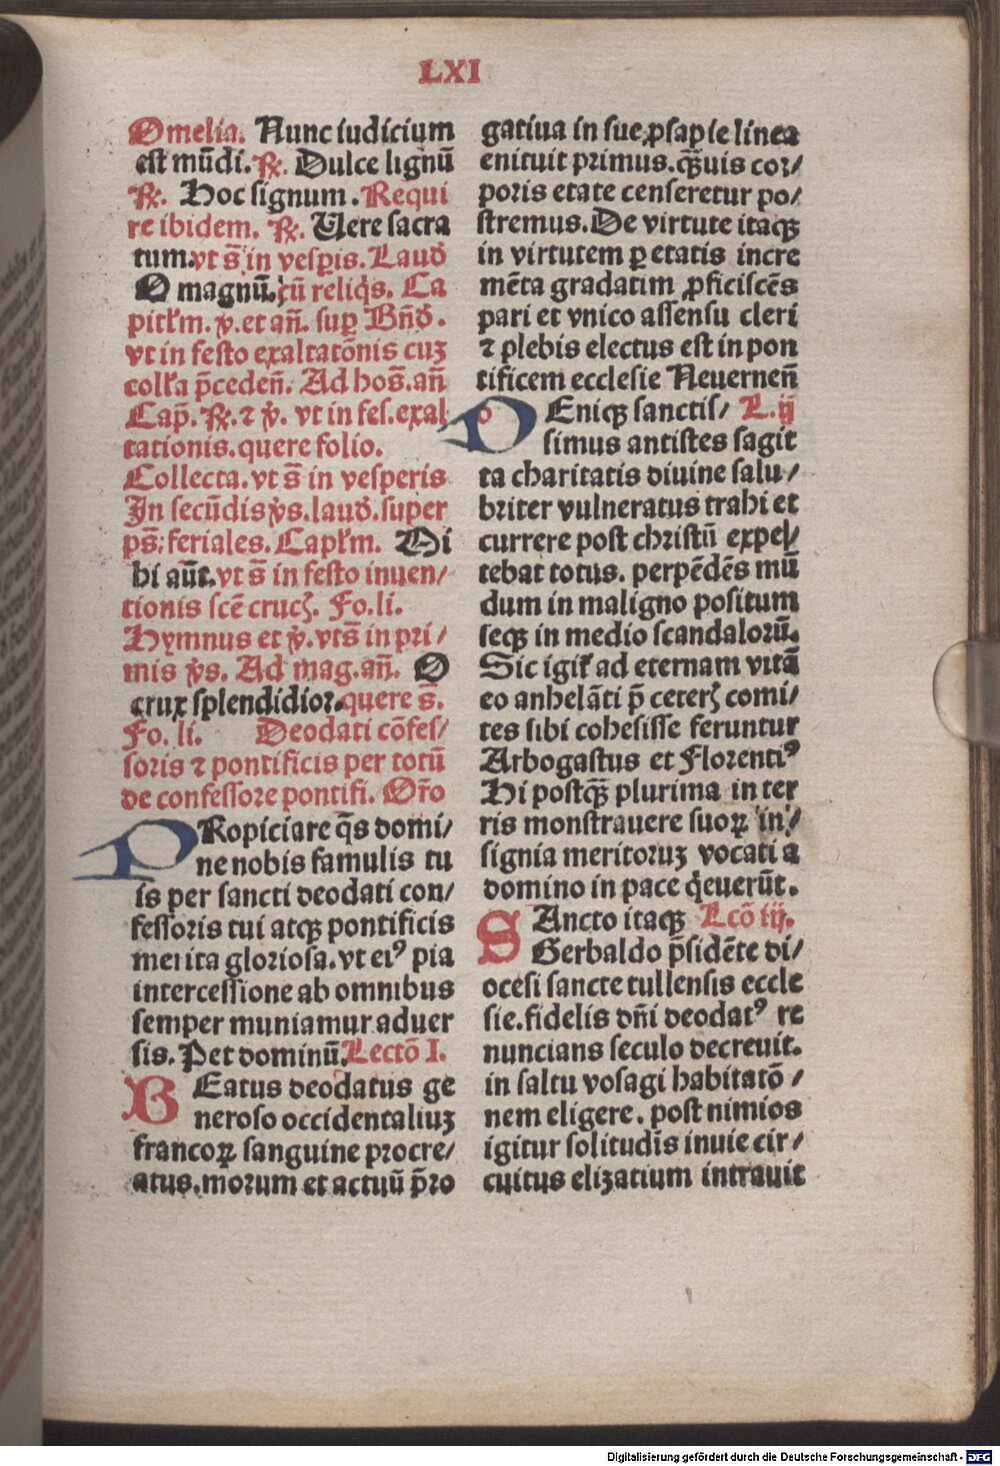 LXI
Omelia. Nunc iudicium
est mūdi. ℟. Dulce lignū
℟. Hoc signum. Requi
re ibidem. ℟. Uere sacra
tum. vt s̄ in vesp̄is. Laud̄
O magnū. cū reliq̄s. Ca
pitl'm. ℣. et an̄. sup̱ Bn̄d̄.
vt in festo exaltatōnis cuꝫ
coll'a p̄ceden̄. Ad hos̄. an̄
Cap̄. ℟. ⁊ ℣. vt in fes. exal
tationis. quere folio.
Collecta. vt s̄ in vesperis
In secūdis ℣s. laud̄. super
ps̄: feriales. Capl'm. Mi
hi aūt. vt s̄ in festo inuen/
tionis scē cruc. Fo. li.
Hymnus et ℣. vt s̄ in pri/
mis ℣s. Ad mag. an̄. O
crux splendidior. quere s̄.
Fo. li. Deodati cōfes/
soris ⁊ pontificis per totū
de confessore pontifi. Or̄o
PRopiciare q̄s domi/
ne nobis famulis tu
is per sancti deodati con/
fessoris tui atqꝫ pontificis
merita gloriosa. vt eiꝰ pia
intercessione ab omnibus
semper muniamur aduer
sis. Per dominū. Lectō I.
BEatus deodatus ge
neroso occidentaliuꝫ
francoꝝ sanguine procre/
atus. morum et actuū p̄ro
gatiua in sue ꝓsapie linea
enituit primus. qꝫuis cor/
poris etate censeretur po/
stremus. De virtute itaqꝫ
in virtutem ꝑ etatis incre
mēta gradatim ꝓficiscēs
pari et vnico assensu cleri
⁊ plebis electus est in pon
tificem ecclesie Neuernen̄
DEniqꝫ sanctis/ L. ij
simus antistes sagit
ta charitatis diuine salu/
briter vulneratus trahi et
currere post christū expe/
tebat totus. perpēdēs mū
dum in maligno positum
seqꝫ in medio scandalorū.
Sic igit̄ ad eternam vitā
eo anhelāti p̄ ceter comi/
tes sibi cohesisse feruntur
Arbogastus et Florentiꝰ
Hi postqꝫ plurima in ter
ris monstrauere suoꝝ in/
signia meritoruꝫ vocati a
domino in pace q̄euerūt.
SAncto itaqꝫ Lcō iij.
Gerbaldo p̄sidēte di/
ocesi sancte tullensis eccle
sie. fidelis dn̄i deodatꝰ re
nuncians seculo decreuit.
in saltu vosagi habitatō/
nem eligere. post nimios
igitur solitudīs inuie cir/
cuitus elizatium intrauit
Digitalisierung gefördert durch die Deutsche Forschungsgemeinschaft - DFG